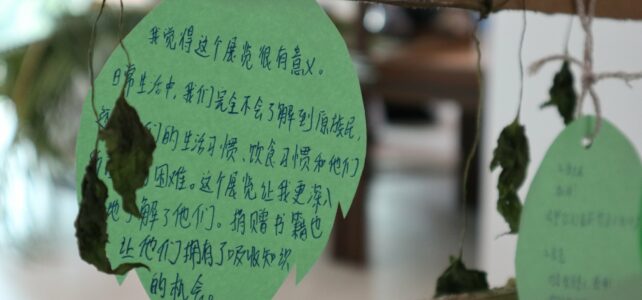 我觉得这个展览很有意义。
日常生活中,我们完全不会了解到原族民,
们的生活习惯、饮食习惯和他们
困难。这个展览让我更深入
地了解了他们。捐赠书籍也
让他们拥有了吸收知识
的机会。